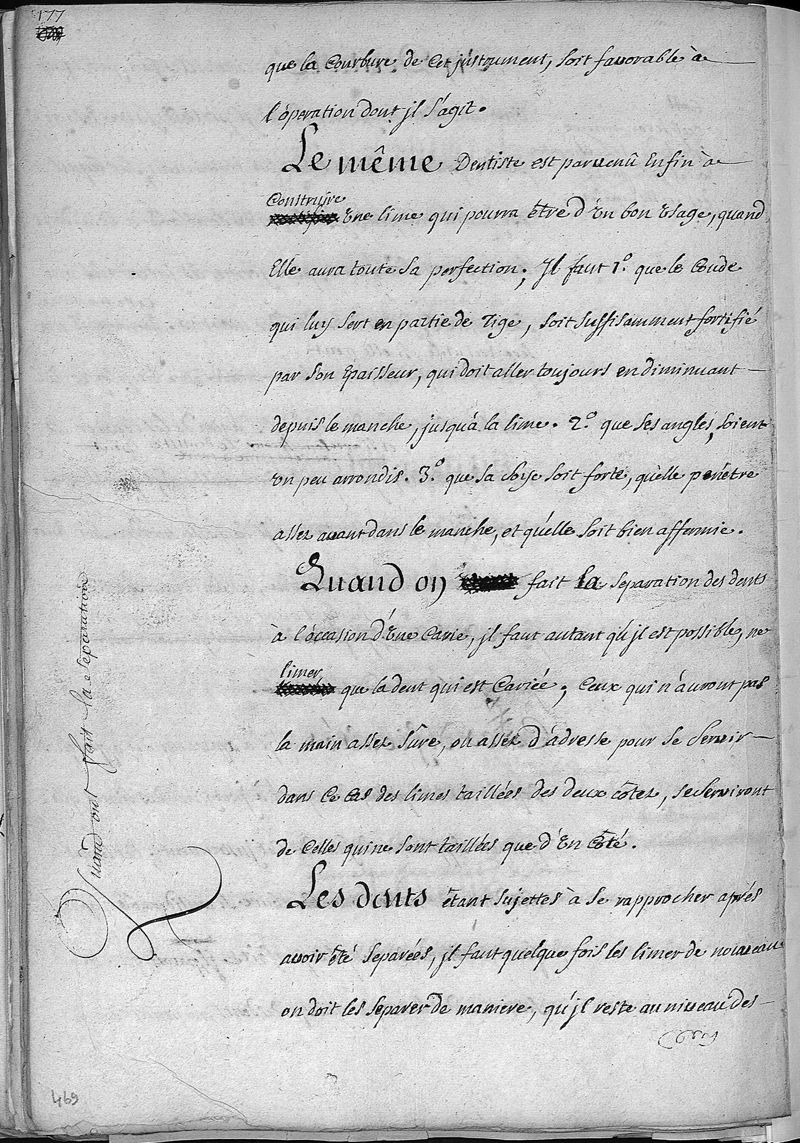 177
que la Courbure de Cet jnstrument, soit favorable à
l'óperation dont jl s'agit.
Le même Dentiste est parvenû Enfin à
Construjre
Vne lime qui pourra être d'Vn bon Vsage, quand
Elle aura toute sa perfection; Jl faut 1.º que le Coude
qui luy sert en partie de Tige, soit suffisamment fortifié
par son Epaisseur, qui doit aller toujours en diminuant
depuis le manche, jusqu'à la lime. 2.º que ses angles, soient
vn peu arrondis. 3.º que sa soye soit forte, qu'elle penêtre
assez avant dans le manche, et qu'elle soit bien affermie.
Quand on fait la separation des dents
à l'óccasion d'Vne Carie, jl faut autant qu'jl est possible, ne
limer
que la dent qui est Cariée; Ceux qui n'áuront pas
la main assez sûre, ou assez d'adresse pour se servir
dans Ce Cas des limes taillées des deux côtez, se serviront
de Celles qui ne sont taillées que d'Vn Côté.
Les dents étant sujettes à se rapprocher aprés
avoir été separées, jl faut quelque fois les limer de nouveau
on doit les separer de maniere, qu'jl reste au niveau des
Quand ont fait la separation
469